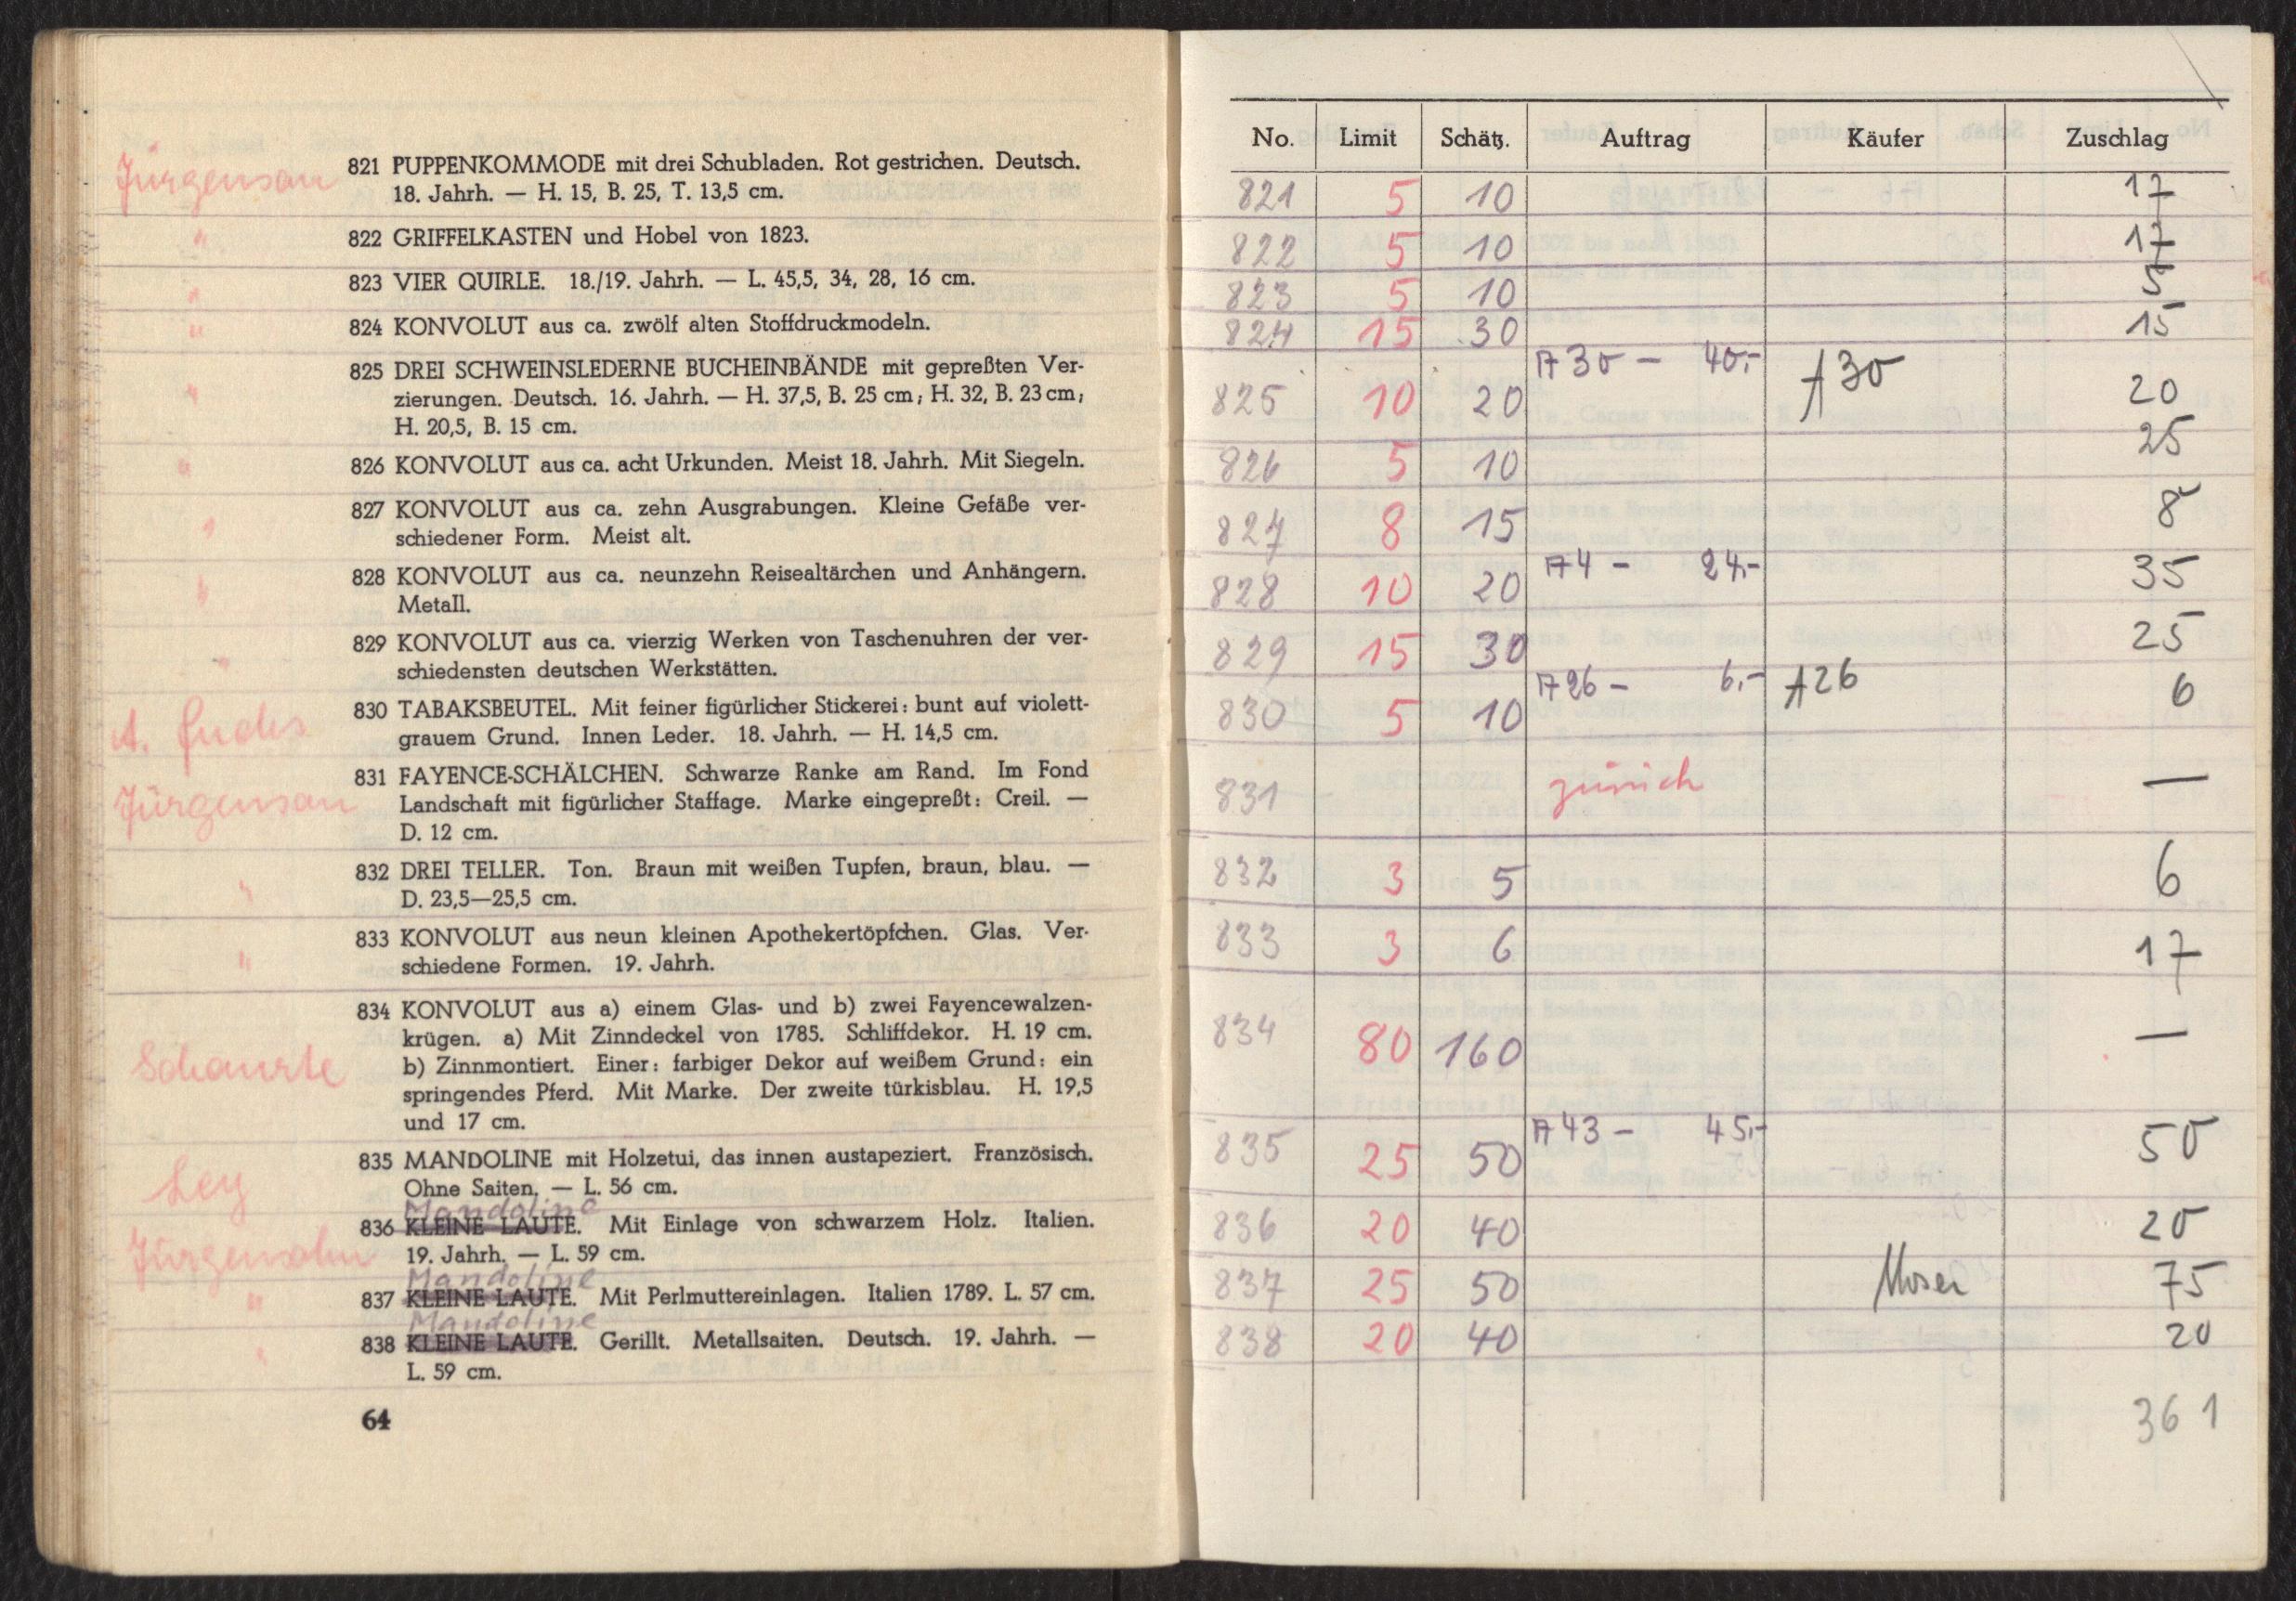 Jürgensen
821 PUPPENKOMMODE mit drei Schubladen. Rot gestrichen. Deutsch.
18. Jahrh. — H. 15, B. 25, T. 13,5 cm.
" 822 GRIFFELKASTEN und Hobel von 1823.
" 823 VIER QUIRLE. 18./19. Jahrh. — L. 45,5, 34, 28, 16 cm.
" 824 KONVOLUT aus ca. zwölf alten Stoffdruckmodeln.
" 825 DREI SCHWEINSLEDERNE BUCHEINBÄNDE mit gepreßten Ver-
zierungen. Deutsch. 16. Jahrh. — H. 37,5, B. 25 cm; H. 32, B. 23 cm;
H. 20,5, B. 15 cm.
" 826 KONVOLUT aus ca. acht Urkunden. Meist 18. Jahrh. Mit Siegeln.
" 827 KONVOLUT aus ca. zehn Ausgrabungen. Kleine Gefäße ver-
schiedener Form. Meist alt.
" 828 KONVOLUT aus ca. neunzehn Reisealtärchen und Anhängern.
Metall.
" 829 KONVOLUT aus ca. vierzig Werken von Taschenuhren der ver-
schiedensten deutschen Werkstätten.
A. Fuchs
830 TABAKSBEUTEL. Mit feiner figürlicher Stickerei: bunt auf violett-
grauem Grund. Innen Leder. 18. Jahrh. — H. 14,5 cm.
Jürgensen
831 FAYENCE-SCHÄLCHEN. Schwarze Ranke am Rand. Im Fond
Landschaft mit figürlicher Staffage. Marke eingepreßt: Creil. —
D. 12 cm.
" 832 DREI TELLER. Ton. Braun mit weißen Tupfen, braun, blau. —
D. 23,5—25,5 cm.
" 833 KONVOLUT aus neun kleinen Apothekertöpfchen. Glas. Ver-
schiedene Formen. 19. Jahrh.
834 KONVOLUT aus a) einem Glas- und b) zwei Fayencewalzen-
krügen. a) Mit Zinndeckel von 1785. Schliffdekor. H. 19 cm.
Schaurte
b) Zinnmontiert. Einer: farbiger Dekor auf weißem Grund: ein
springendes Pferd. Mit Marke. Der zweite türkisblau. H. 19,5
und 17 cm.
Ley
835 MANDOLINE mit Holzetui, das innen austapeziert. Französisch.
Ohne Saiten. — L. 56 cm.
Mandoline
Jürgensohn
836 KLEINE LAUTE. Mit Einlage von schwarzem Holz. Italien.
19. Jahrh. — L. 59 cm.
Mandoline
" 837 KLEINE LAUTE. Mit Perlmuttereinlagen. Italien 1789. L. 57 cm.
Mandoline
" 838 KLEINE LAUTE. Gerillt. Metallsaiten. Deutsch. 19. Jahrh. —
L. 59 cm.
64
No. Limit Schätz. Auftrag Käufer Zuschlag
821 5 10 17
822 5 10 17
823 5 10 5
824 15 30 15
825 10 20 A 30 — 40,- A 30 20
826 5 10 25
827 8 15 8
828 10 20 A 4 - 24,- 35
829 15 30 25
830 5 10 A 26 - 6,- A 26 6
831 zurück —
832 3 5 6
833 3 6 17
834 80 160 —
835 25 50 A 43 - 45,- 50
836 20 40 20
837 25 50 Moser 75
838 20 40 20
361